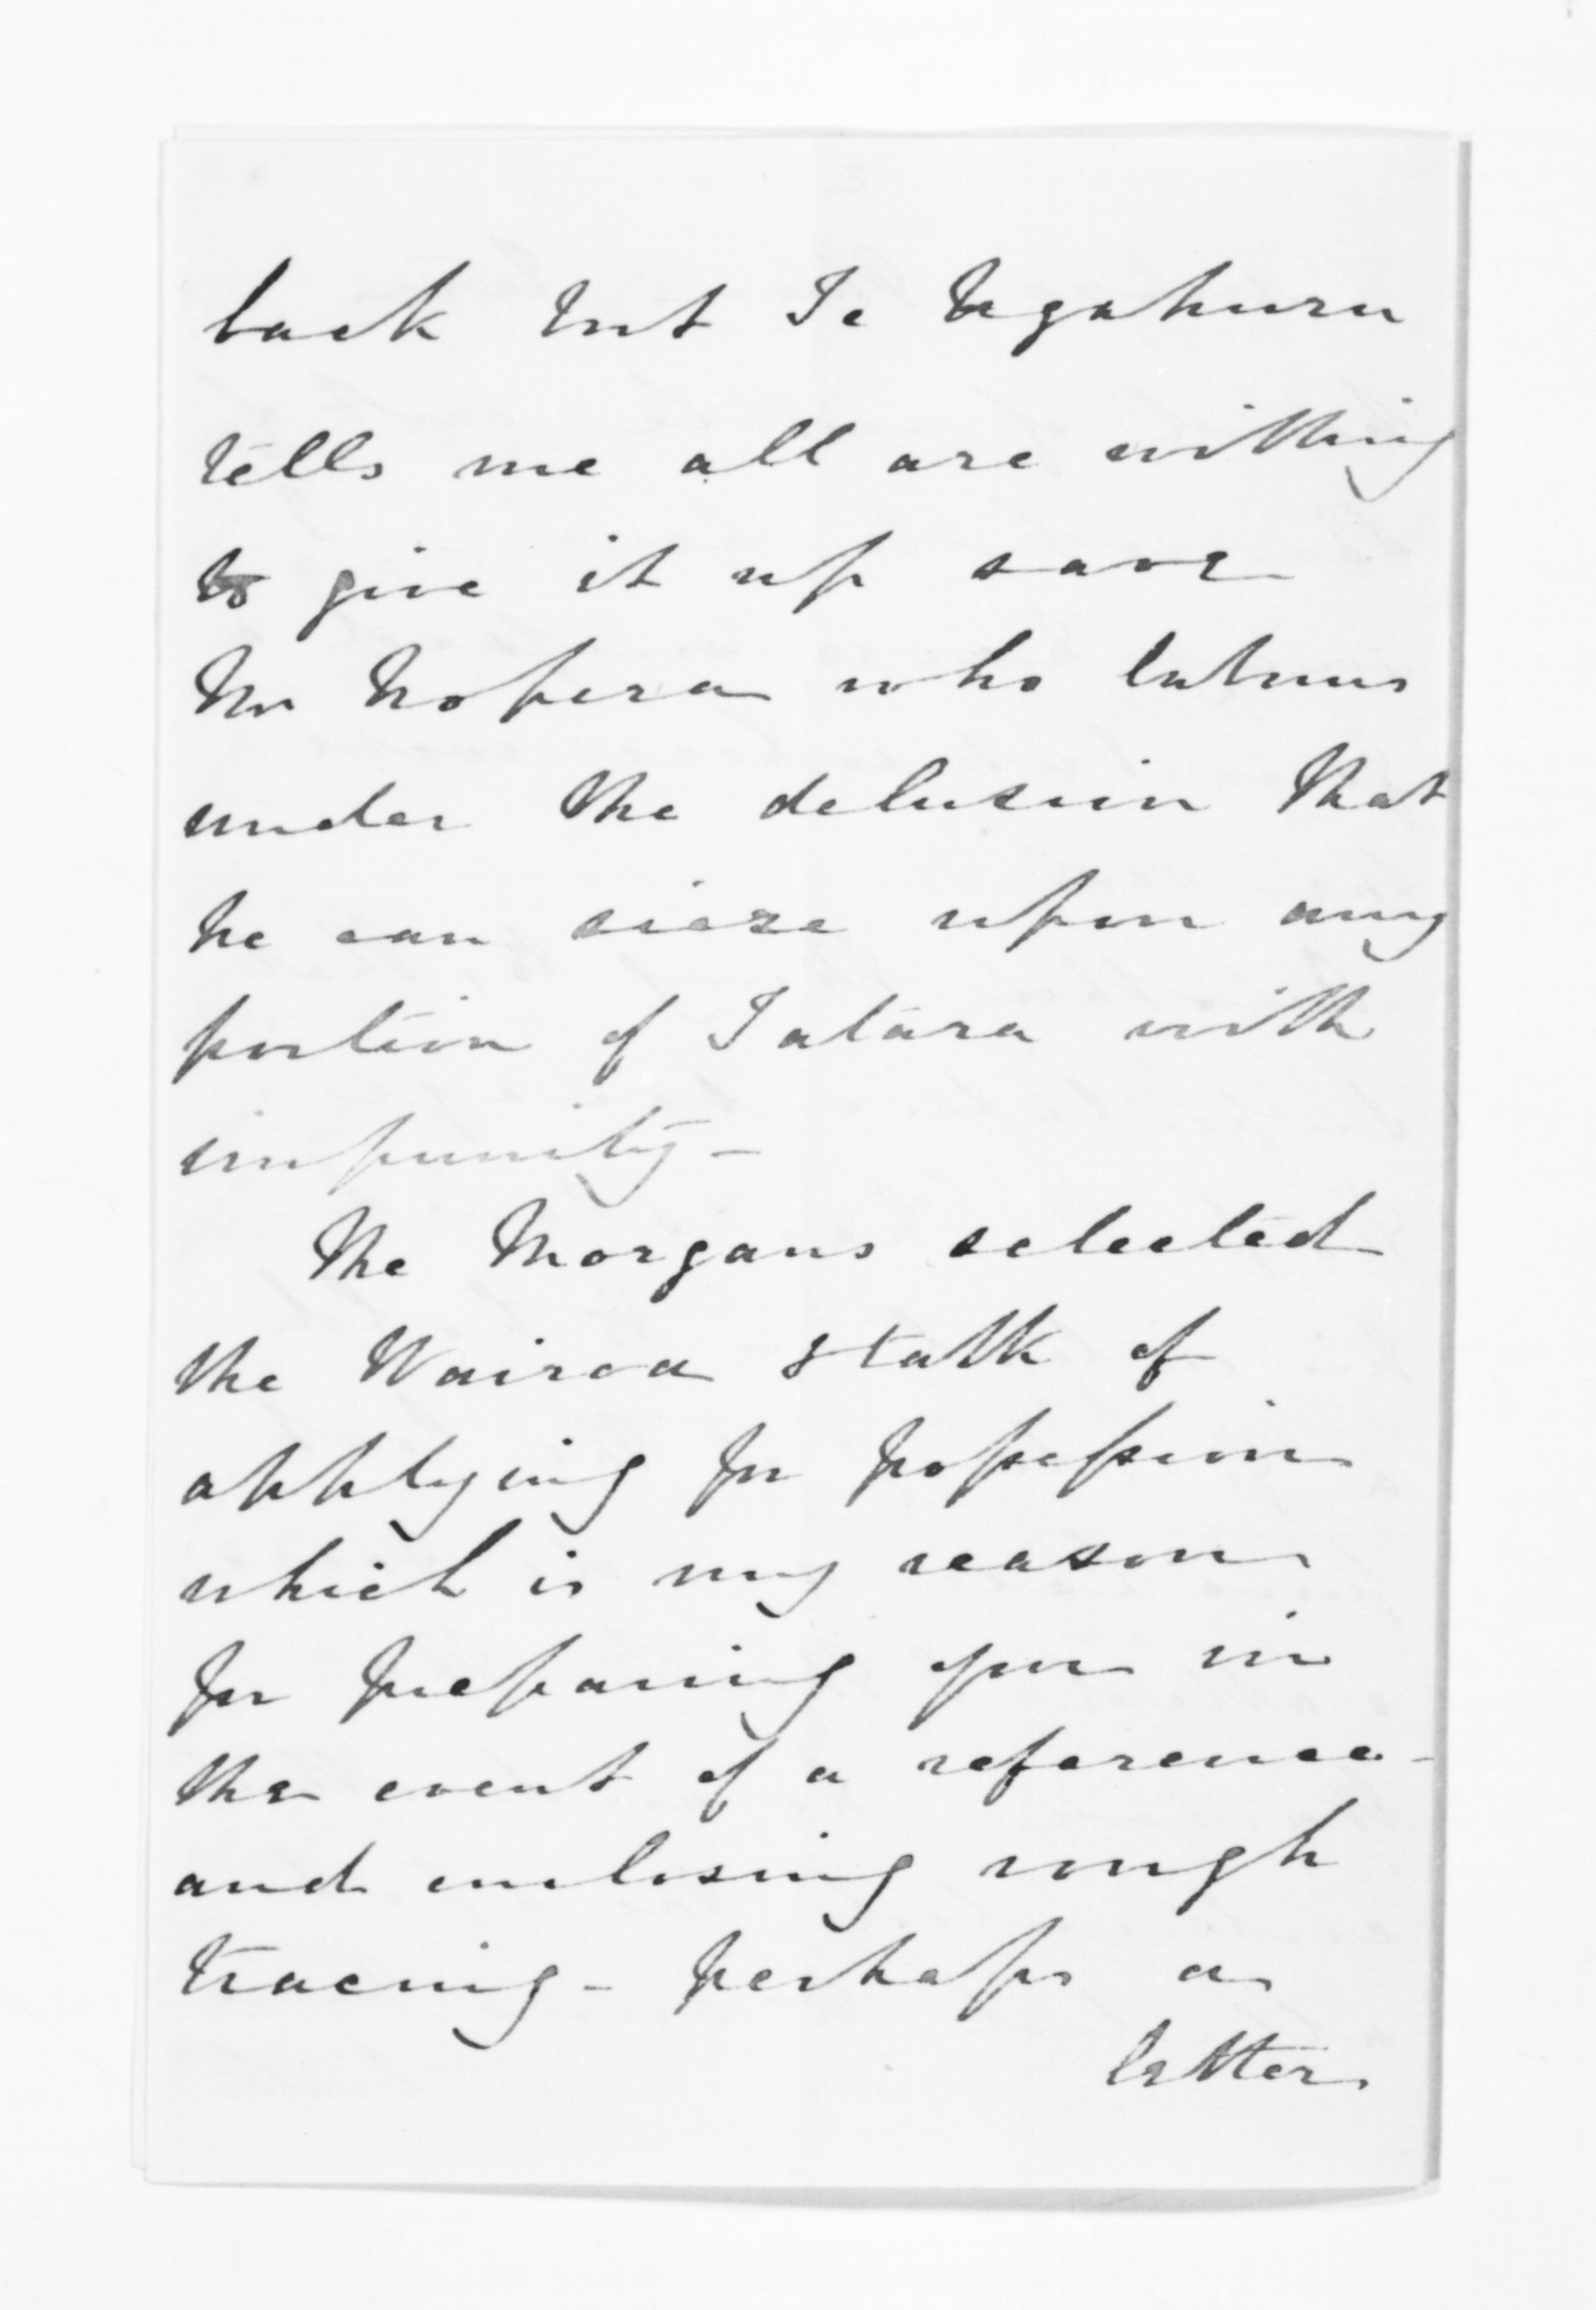 back but Te Ngahuru
tells me all are willing
to give it up save
Mr Nopera who labours
under the delusion that
he can sieze upon any
portion of Tatara with
impunity -
The Morgans selected
the Wairoa stalk of
applying for possession
which is my reason
for preparing you in
the event of a reference -
and enclosing rough
tracing - perhaps a
letter